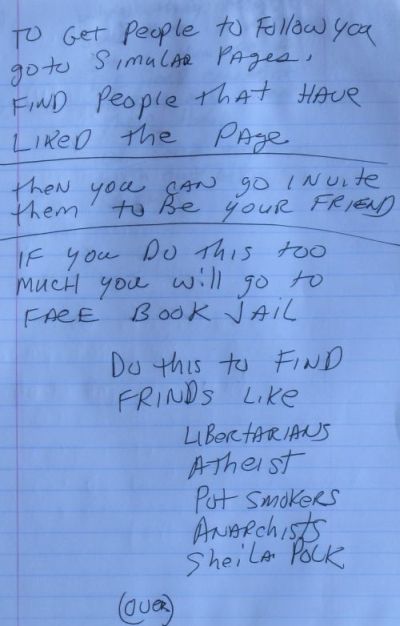 To Get People to Follow you
go to Simular Pages.
FIND People that HAVE
LIKED the PAge
then you CAN go INVITE
them to Be YOUR FRIEND
IF you Do this too
MUCH you will go to
FACE BOOK JAIL
Do this to FIND
FRINDS LIKE
LIBERTARIANS
Atheist
Pot SMOKERS
ANARCHISTS
SHeiLA POLK
(OVER)